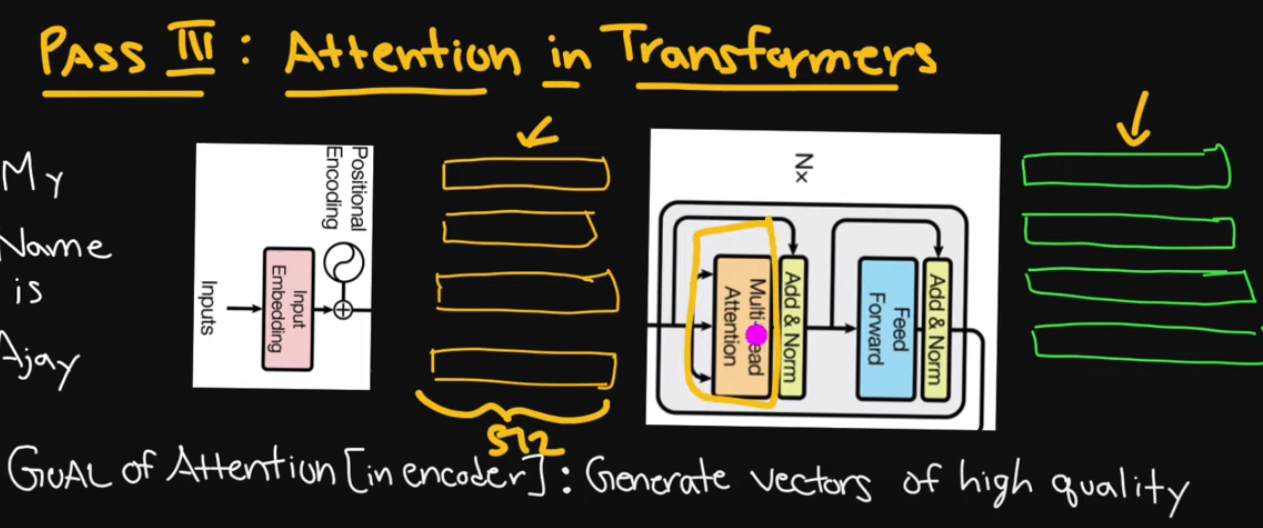 PASS III : Attention in Transformers
My
Name
is
Ajay
Positional
Encoding
Input
Embedding
Inputs
512
Nx
Multi-Head
Attention
Add & Norm
Feed
Forward
Add & Norm
GOAL of Attention [in encoder] : Generate vectors of high quality